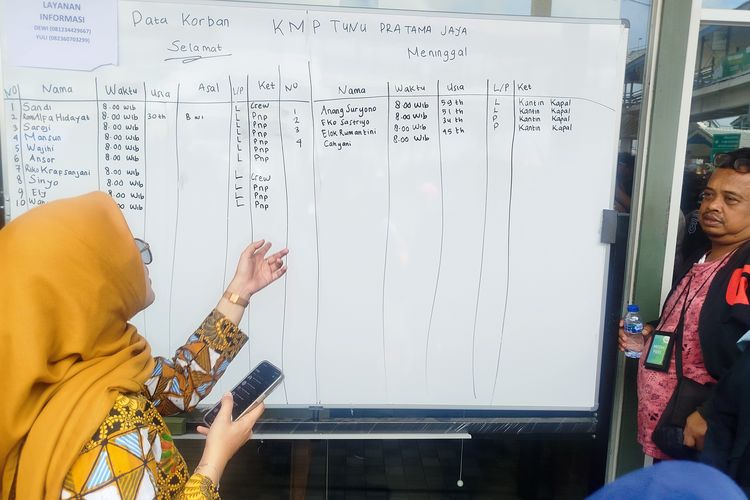 LAYANAN
INFORMASI
DEWI (081234429667)
YULI (082360703299)
Data Korban KMP TUNU PRATAMA JAYA
Selamat Meninggal
NO Nama Waktu Usia Asal L/P Ket NO Nama Waktu Usia L/P Ket
1 Sandi 8.00 Wib L Crew 1 Anang Suryono 8.00 Wib 59 th L Kantin Kapal
2 Alfa Hidayat 8.00 Wib 30 th Bwi L Pnp 2 Eko Sastriyo 8.00 Wib 51 th L Kantin Kapal
3 Saroji 8.00 Wib L Pnp 3 Elok Rumantini 8.00 Wib 34 th P Kantin Kapal
4 Mansun 8.00 Wib L Pnp 4 Cahyani 8.00 Wib 45 th P Kantin Kapal
5 Wajihi 8.00 Wib L Pnp
6 Ansor 8.00 Wib L Pnp
7 Riko Krapsanjani 8.00 Wib
8 Sinyo 8.00 Wib L Crew
9 Ely 8.00 Wib L Pnp
10 8.00 Wib L Pnp